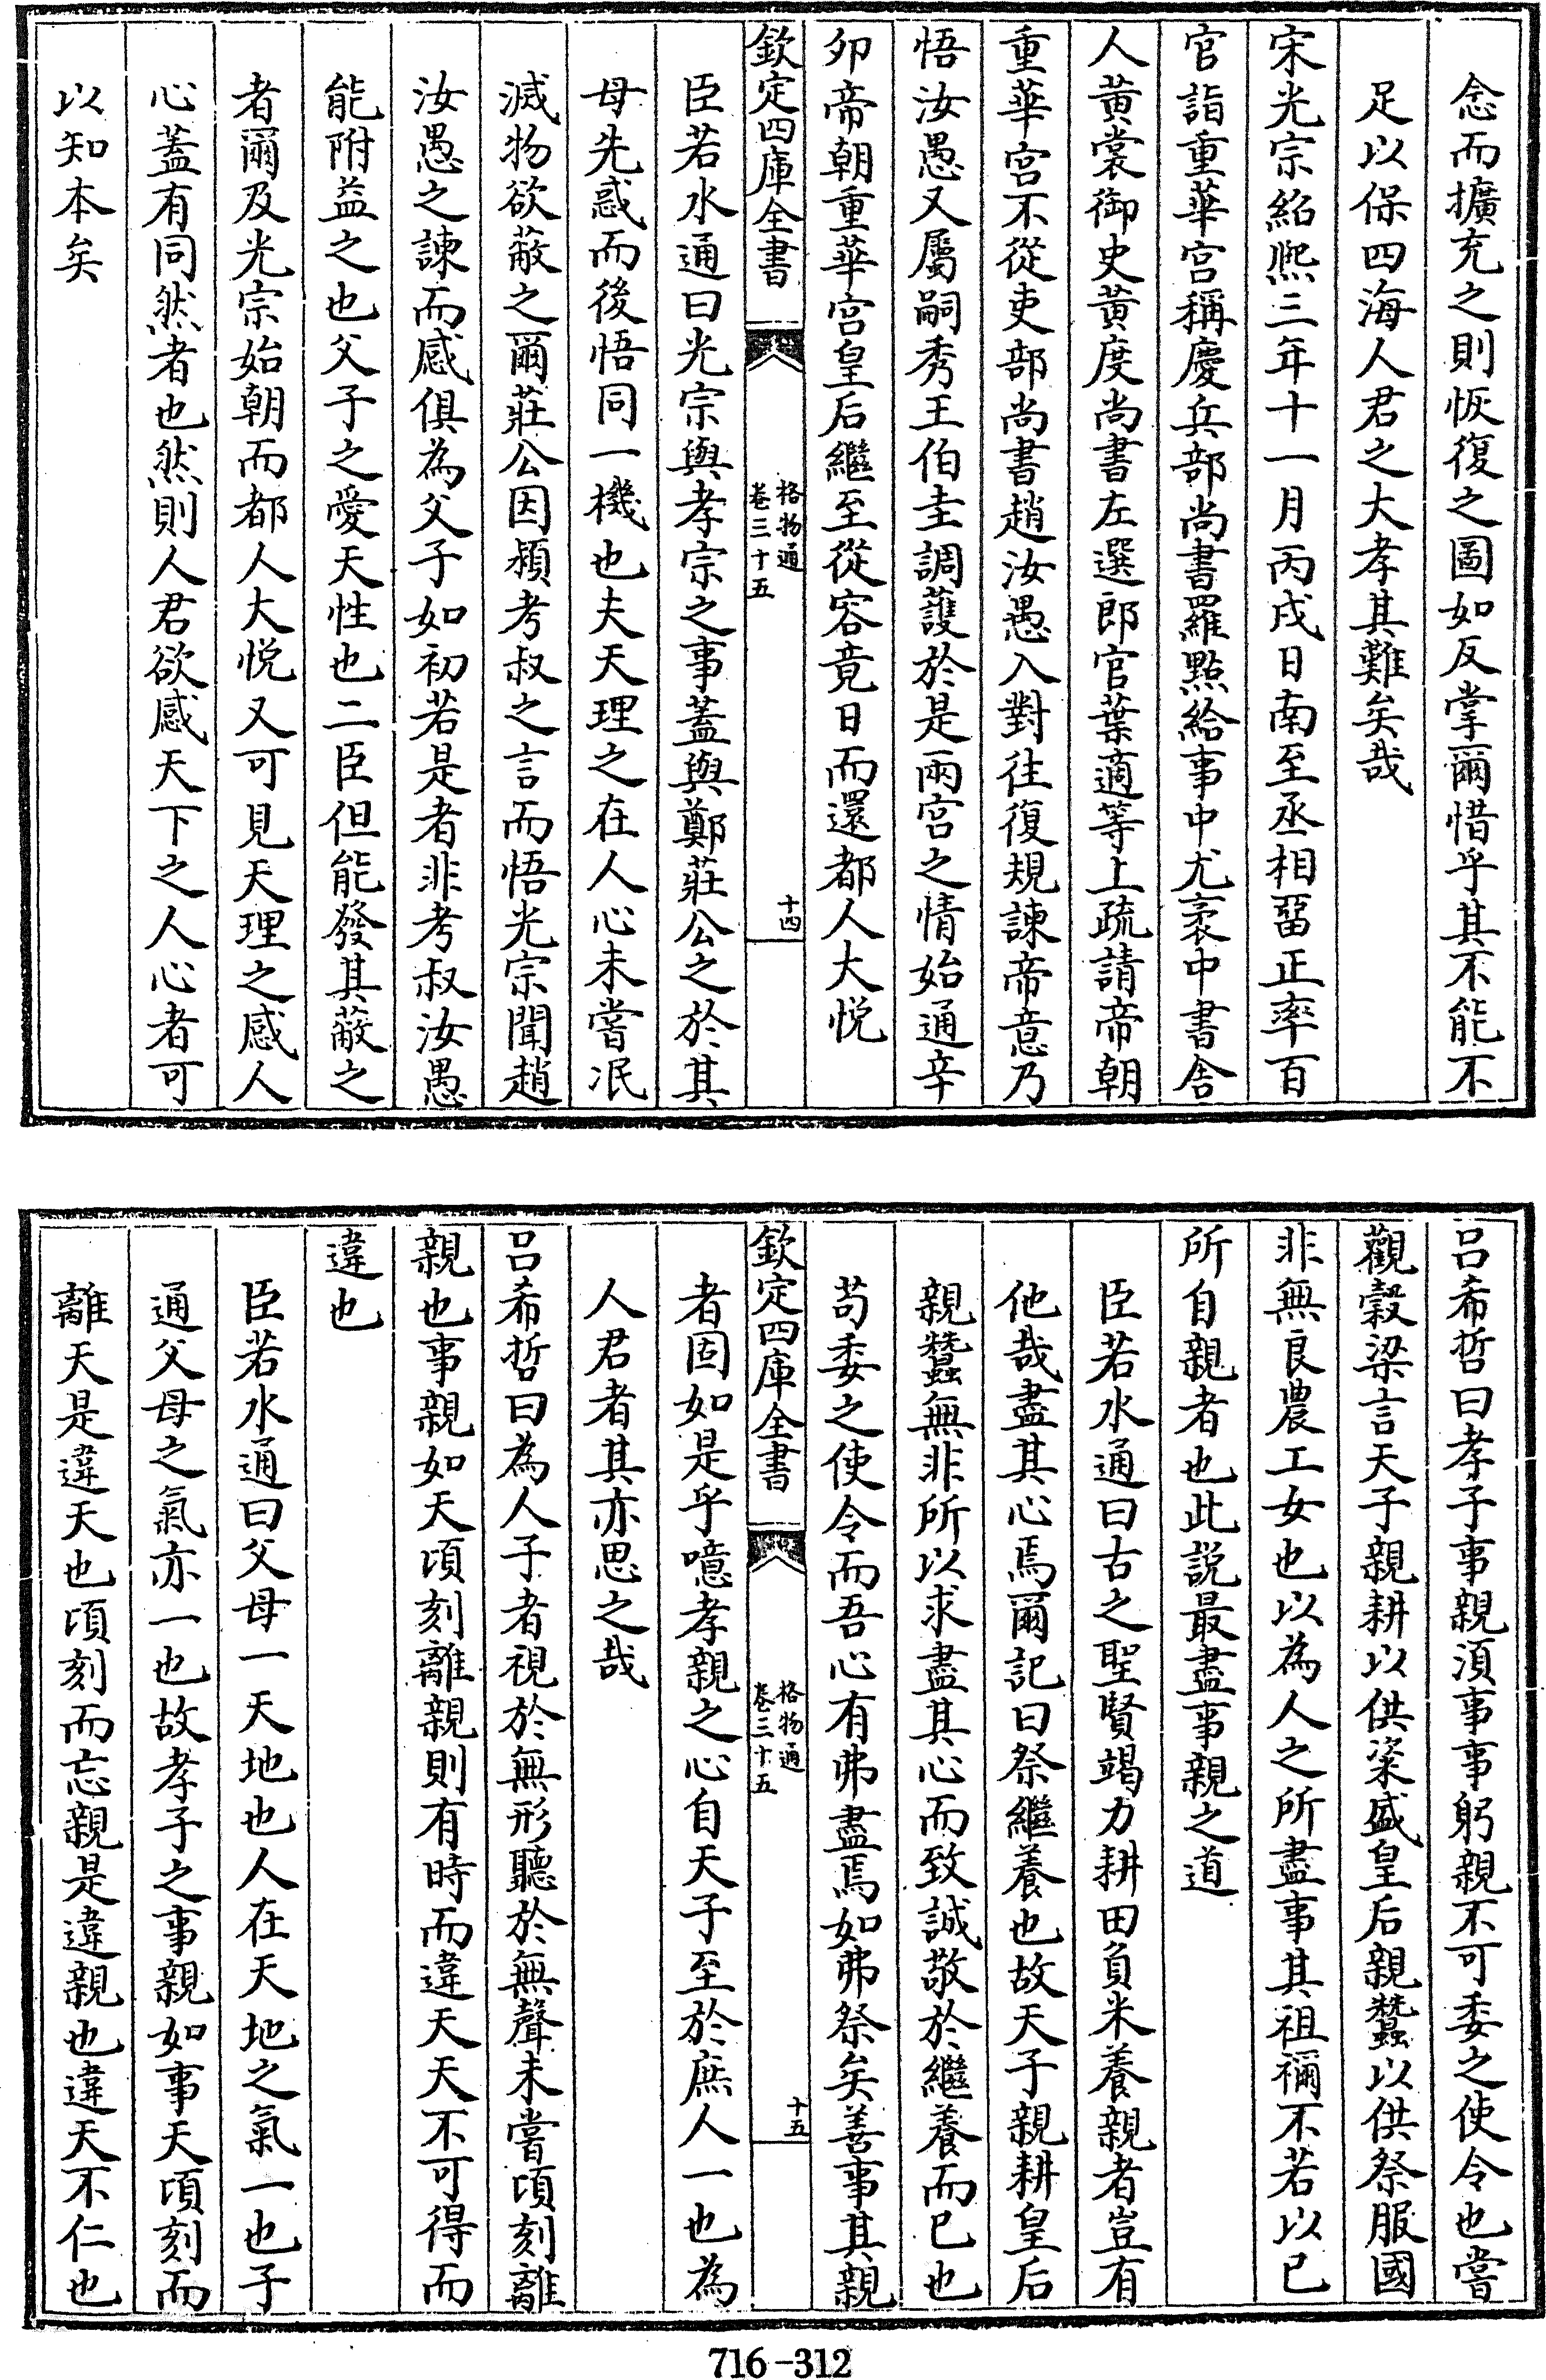 念而擴充之則恢復之圖如反掌爾惜乎其不能不
足以保四海人君之大孝其難矣哉
宋光宗紹熙三年十一月丙戌日南至丞相留正率百
官詣重華宮稱慶兵部尚書羅點給事中尤袤中書舍
人黃裳御史黃度尚書左選郎官葉適等上疏請帝朝
重華宮不從吏部尚書趙汝愚入對往復規諫帝意乃
悟汝愚又屬嗣秀王伯圭調護於是兩宮之情始通辛
卯帝朝重華宮皇后繼至從容竟日而還都人大悅
欽定四庫全書
格物通
卷三十五
十四
臣若水通曰光宗與孝宗之事蓋與鄭莊公之於其
母先惑而後悟同一機也夫天理之在人心未嘗泯
滅物欲蔽之爾莊公因潁考叔之言而悟光宗聞趙
汝愚之諫而感俱為父子如初若是者非考叔汝愚
能附益之也父子之愛天性也二臣但能發其蔽之
者爾及光宗始朝而都人大悅又可見天理之感人
心蓋有同然者也然則人君欲感天下之人心者可
以知本矣
呂希哲曰孝子事親須事事躬親不可委之使令也嘗
觀穀梁言天子親耕以供粢盛皇后親蠶以供祭服國
非無良農工女也以為人之所盡事其祖禰不若以己
所自親者也此説最盡事親之道
臣若水通曰古之聖賢竭力耕田負米養親者豈有
他哉盡其心焉爾記曰祭繼養也故天子親耕皇后
親蠶無非所以求盡其心而致誠敬於繼養而已也
苟委之使令而吾心有弗盡焉如弗祭矣善事其親
欽定四庫全書
格物通
卷三十五
十五
者固如是乎噫孝親之心自天子至於庶人一也為
人君者其亦思之哉
呂希哲曰為人子者視於無形聽於無聲未嘗頃刻離
親也事親如天頃刻離親則有時而違天天不可得而
違也
臣若水通曰父母一天地也人在天地之氣一也子
通父母之氣亦一也故孝子之事親如事天頃刻而
離天是違天也頃刻而忘親是違親也違天不仁也
716-312